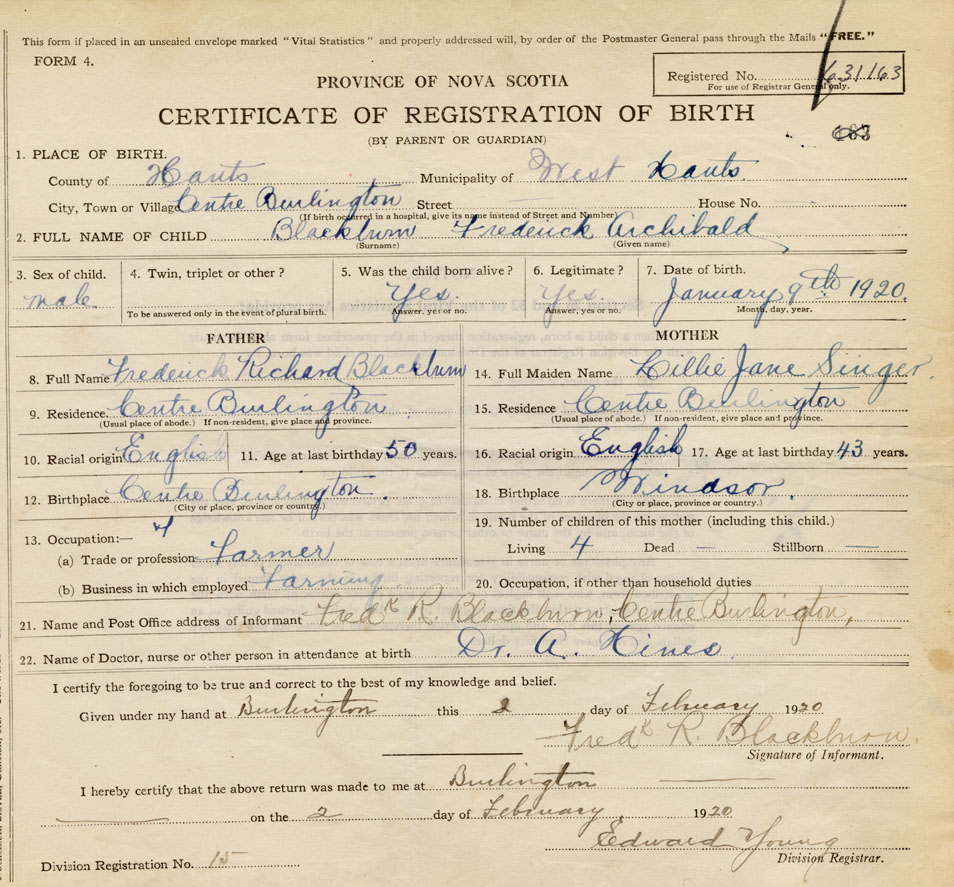 This form if placed in an unsealed envelope marked "Vital Statistics" and properly addressed will, by order of the Postmaster General pass through the Mails "FREE."
FORM 4.
PROVINCE OF NOVA SCOTIA
Registered No. 631163
For use of Registrar General only.
CERTIFICATE OF REGISTRATION OF BIRTH
(BY PARENT OR GUARDIAN)
1. PLACE OF BIRTH.
County of Hants Municipality of West Hants
City, Town or Village Centre Burlington Street House No. —
(If birth occurred in a hospital, give its name instead of Street and Number)
2. FULL NAME OF CHILD Blackburn Frederick Archibald
(Surname) (Given name)
3. Sex of child. 4. Twin, triplet or other? 5. Was the child born alive? 6. Legitimate? 7. Date of birth.
male Yes. Yes. January 9th 1920.
To be answered only in the event of plural birth. Answer, yes or no. Answer, yes or no. Month, day, year.
FATHER MOTHER
8. Full Name Frederick Richard Blackburn 14. Full Maiden Name Lillie Jane Singer.
9. Residence. Centre Burlington 15. Residence Centre Burlington
(Usual place of abode.) If non-resident, give place and province. (Usual place of abode.) If non-resident, give place and province.
10. Racial origin English 11. Age at last birthday 50 years. 16. Racial origin English 17. Age at last birthday 43 years.
12. Birthplace Centre Burlington. 18. Birthplace Windsor.
(City or place, province or country.) (City or place, province or country.)
13. Occupation:— 19. Number of children of this mother (including this child.)
(a) Trade or profession Farmer Living 4 Dead — Stillborn —
(b) Business in which employed Farming 20. Occupation, if other than household duties
21. Name and Post Office address of Informant Fredk R. Blackburn, Centre Burlington,
22. Name of Doctor, nurse or other person in attendance at birth Dr. A. Hines.
I certify the foregoing to be true and correct to the best of my knowledge and belief.
Given under my hand at Burlington this 2 day of February 1920
Fredk R. Blackburn.
Signature of Informant.
I hereby certify that the above return was made to me at Burlington
on the 2 day of February 1920
Edward Young
Division Registration No. 15 Division Registrar.